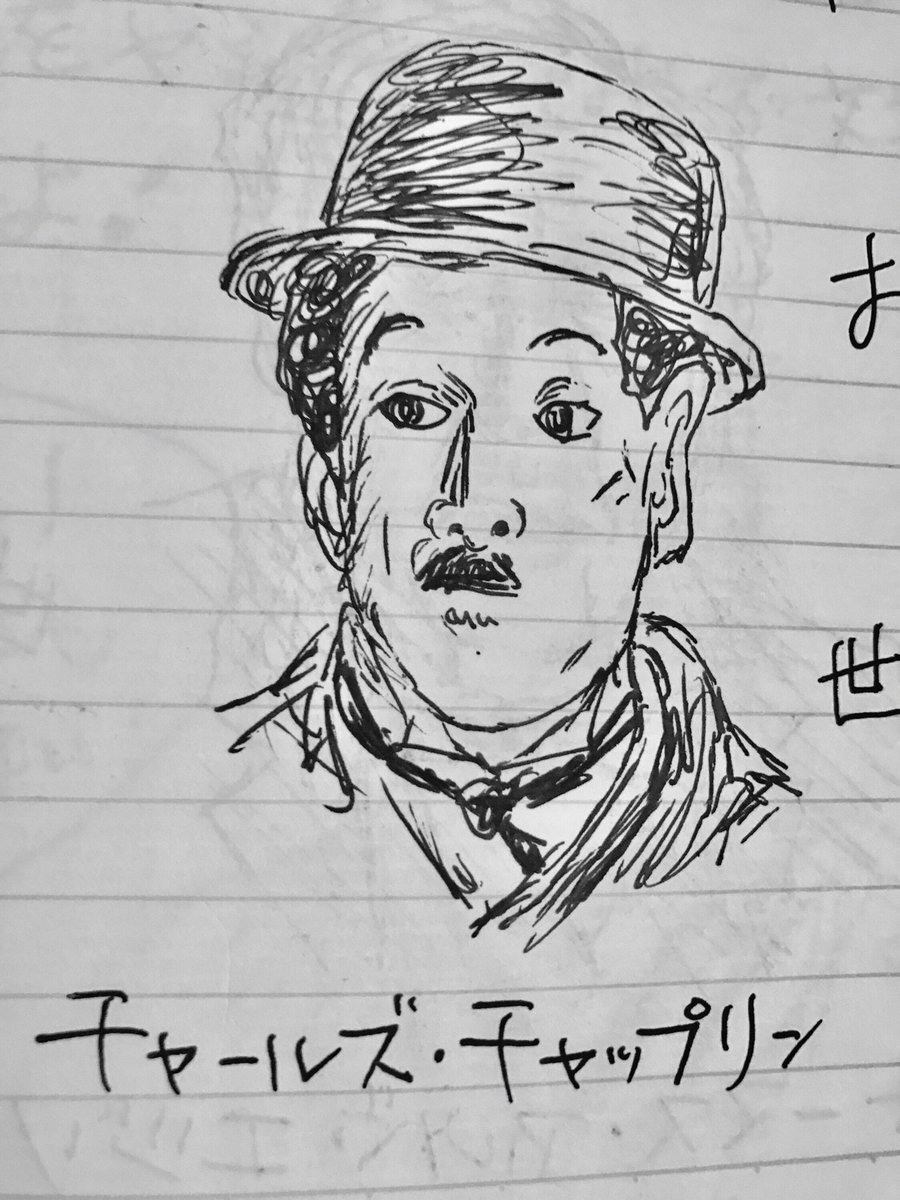 お
世
チャールズ・チャップリン